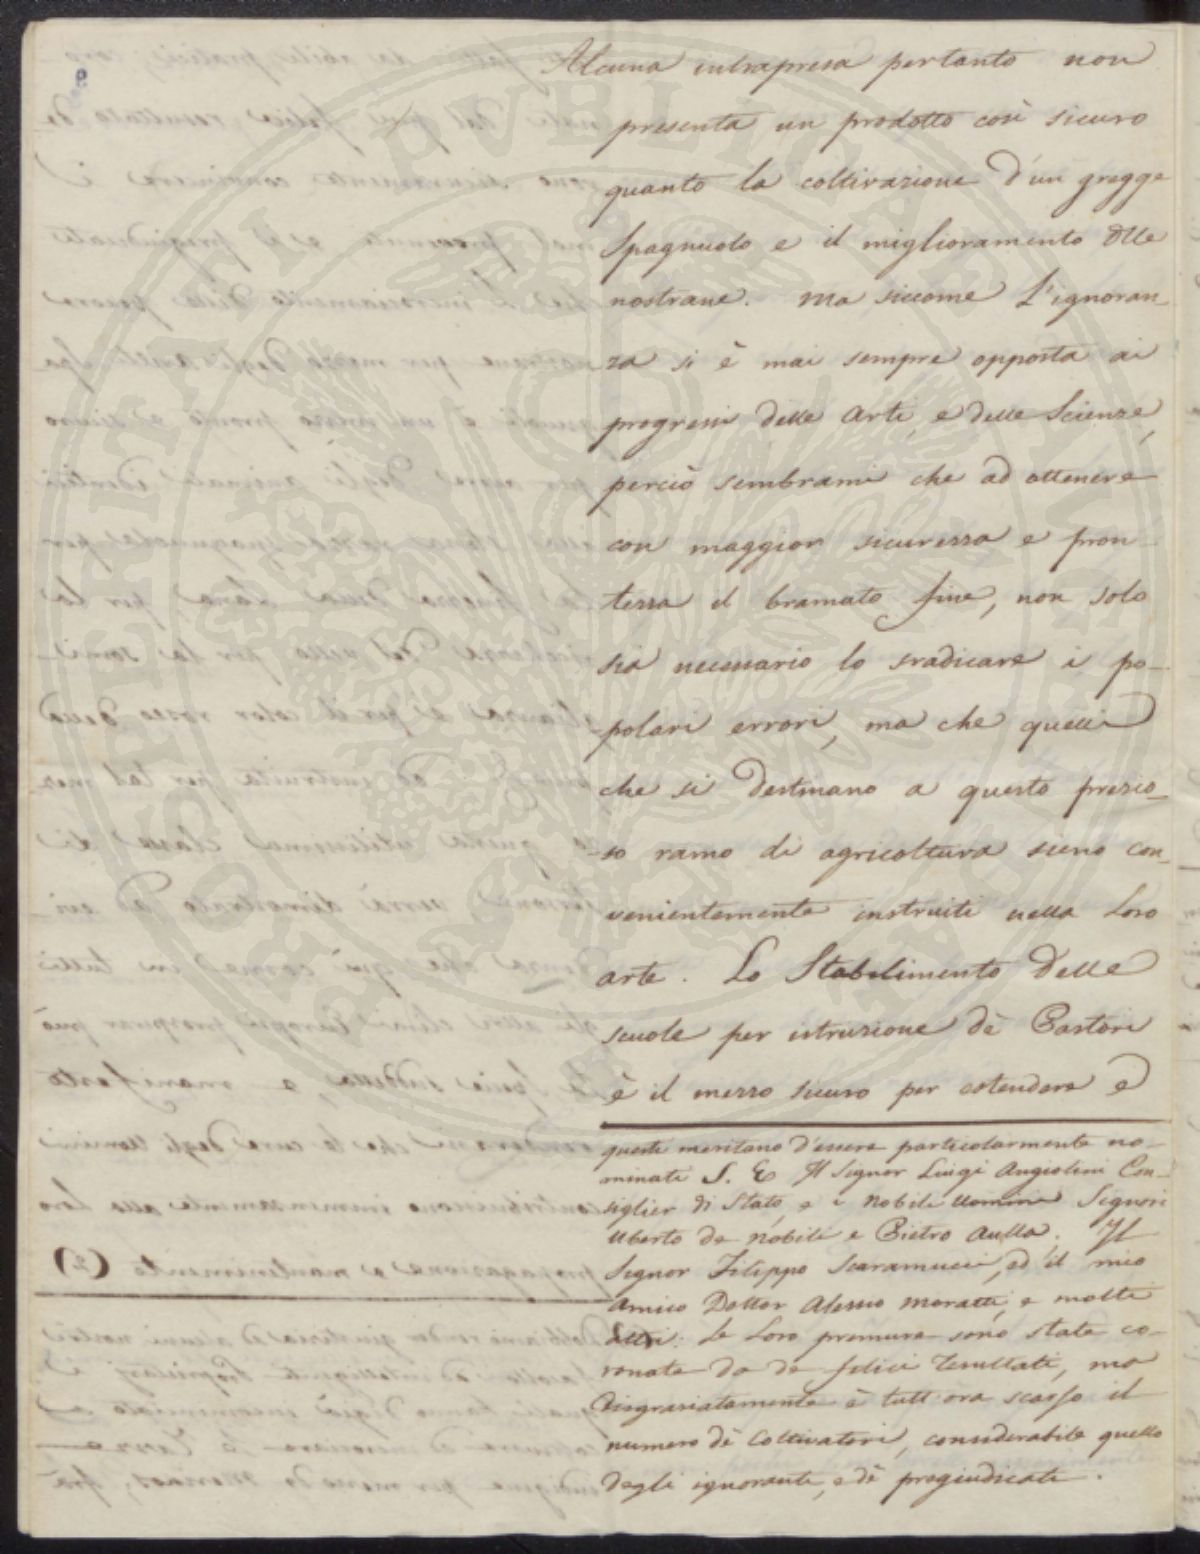 Alcuna intrapresa pertanto non
presenta un prodotto così sicuro
quanto la coltivazione d'un gregge
Spagnuolo e il miglioramento delle
nostrane. Ma siccome l'ignoran-
za si è mai sempre opposta ai
progressi delle Arti, e delle Scienze,
perciò sembrami che ad ottenere
con maggior sicurezza e pron-
tezza il bramato fine, non solo
sia necessario lo sradicare i po-
polari errori, ma che quelli
che si destinano a questo prezio-
so ramo di agricoltura sieno con-
venientemente instruiti nella loro
arte. Lo Stabilimento delle
scuole per istruzione dè Pastori
è il mezzo sicuro per estendere e
queste meritano d'essere particolarmente no-
minati S. E. Il Signor Luigi Angiolini Con-
siglier di Stato, e i Nobili Uomini Signori
Uberto de Nobili e Pietro Aulla. Il
Signor Filippo Scaramucci, ed il mio
Amico Dottor Alessio Moratti, e molti
altri. Le loro premure sono state co-
ronate da de felici resultati, ma
disgraziatamente è tutt'ora scarso il
numero dè Coltivatori, considerabile quello
degli ignoranti, e dè pregiudicati.